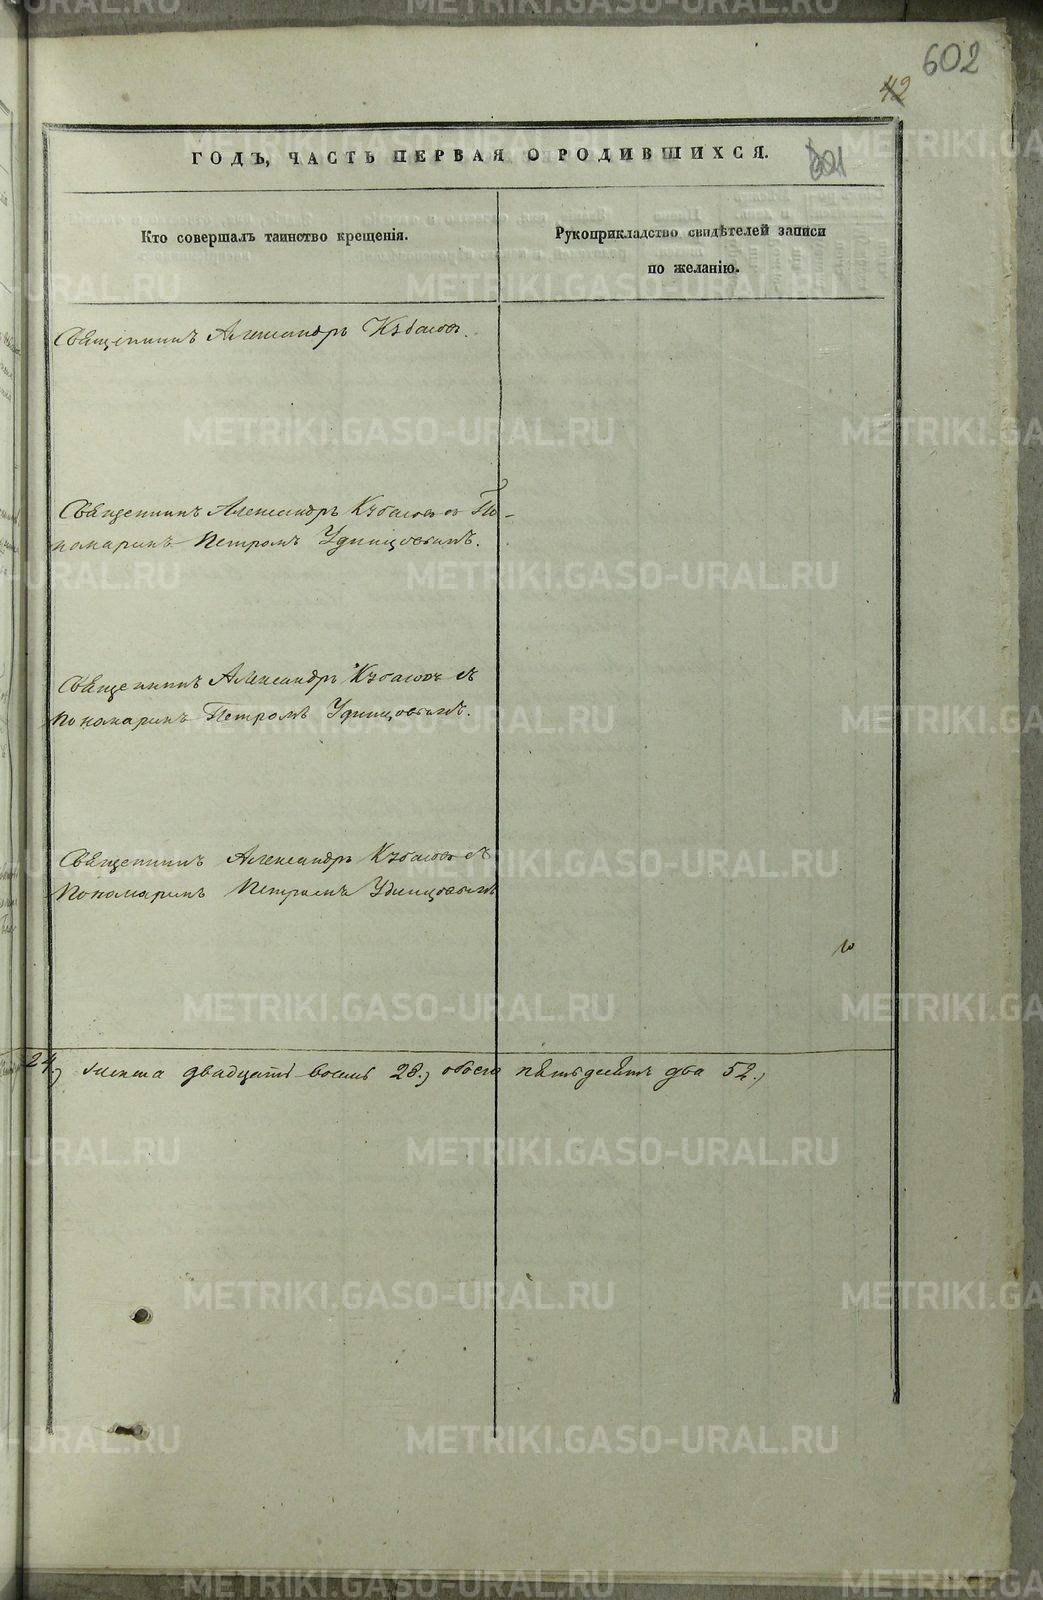 602
42
601
ГОДЪ, ЧАСТЬ ПЕРВАЯ О РОДИВШИХСЯ.
Кто совершалъ таинство крещенія.
Рукоприкладство свидѣтелей записи
по желанію.
Священникъ Александръ Кубасовъ.
Священникъ Александръ Кубасовъ съ По-
номаремъ Петромъ Удинцовымъ.
Священникъ Александръ Кубасовъ съ
Пономаремъ Петромъ Удинцовымъ.
Священникъ Александръ Кубасовъ съ
Пономаремъ Петромъ Удинцовымъ
24,) женска двадцать восемь 28.) обоего пятьдесятъ два 52.)
METRIKI.GASO-URAL.RU